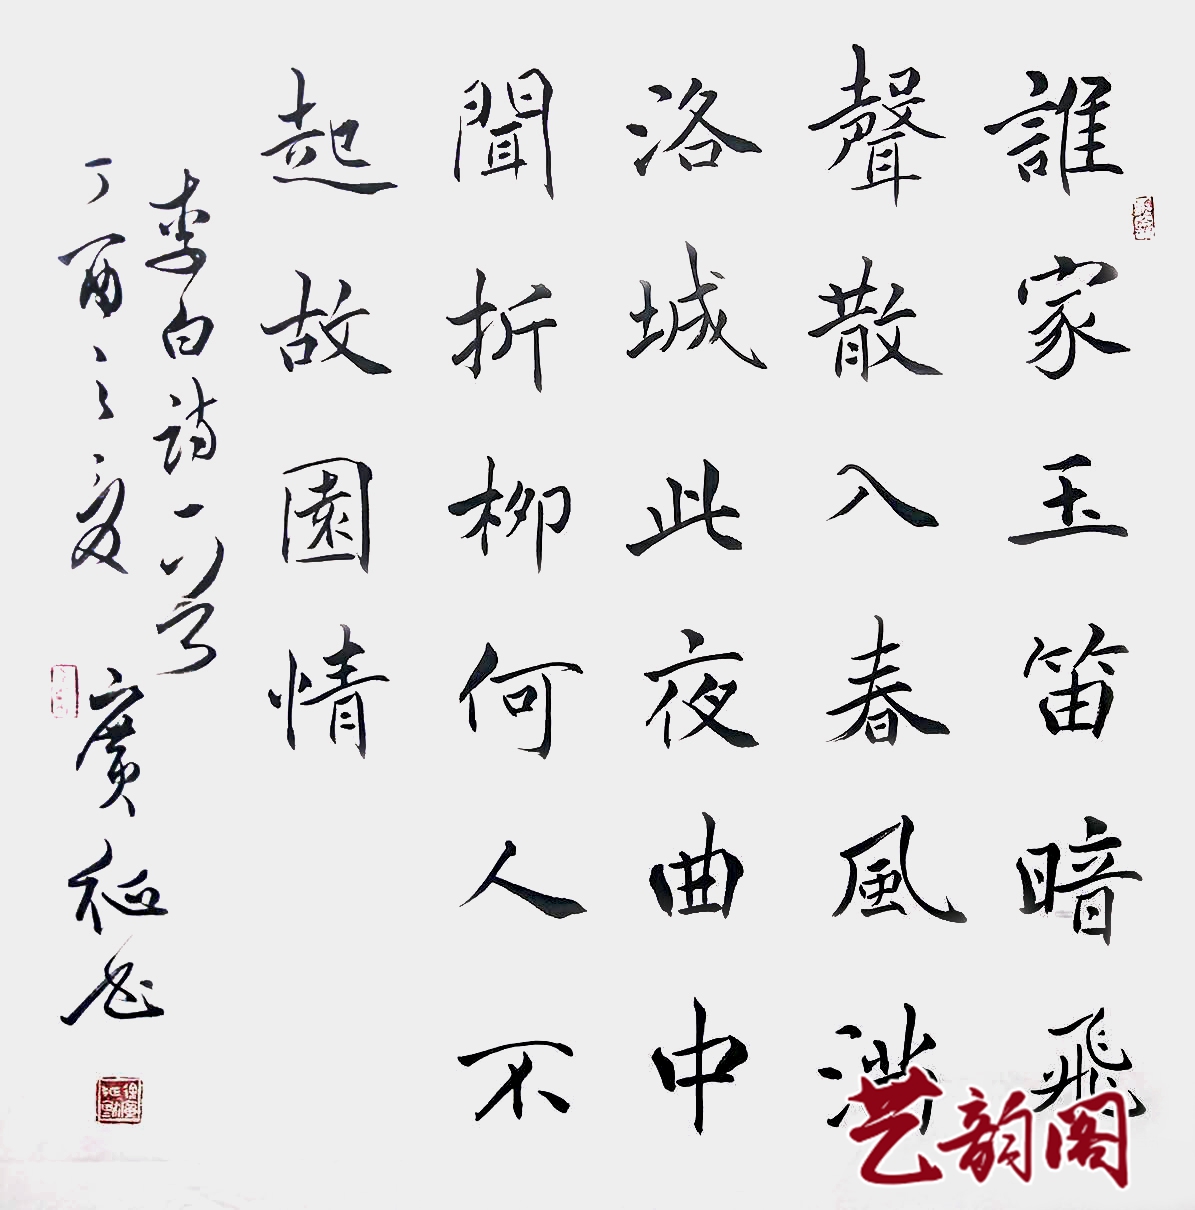 誰家玉笛暗飛
聲散入春風滿
洛城此夜曲中
聞折柳何人不
起故園情
李白詩一首
丁酉之夏 廣征书
艺韵阁